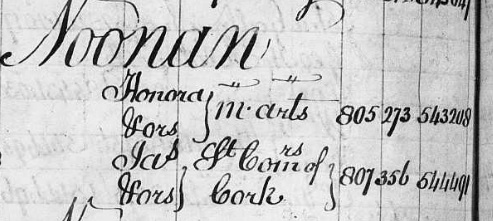 Noonan
Honora } m. arts 805 273 543208
& ors
Jas } St Comrs of } 807 356 544491
& ors Cork